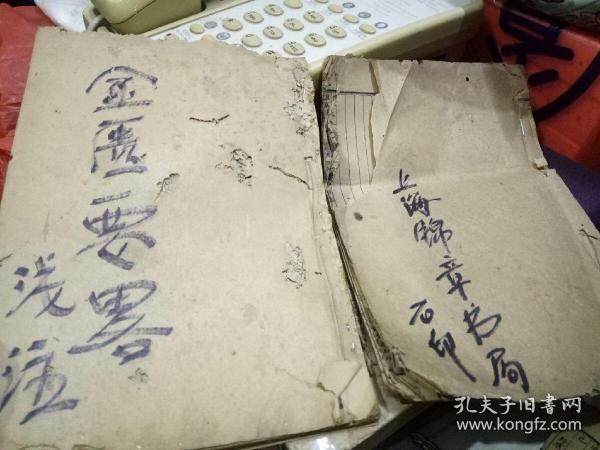 金匮要畧
浅注
上海锦章书局
石印
孔夫子旧书网
www.kongfz.com